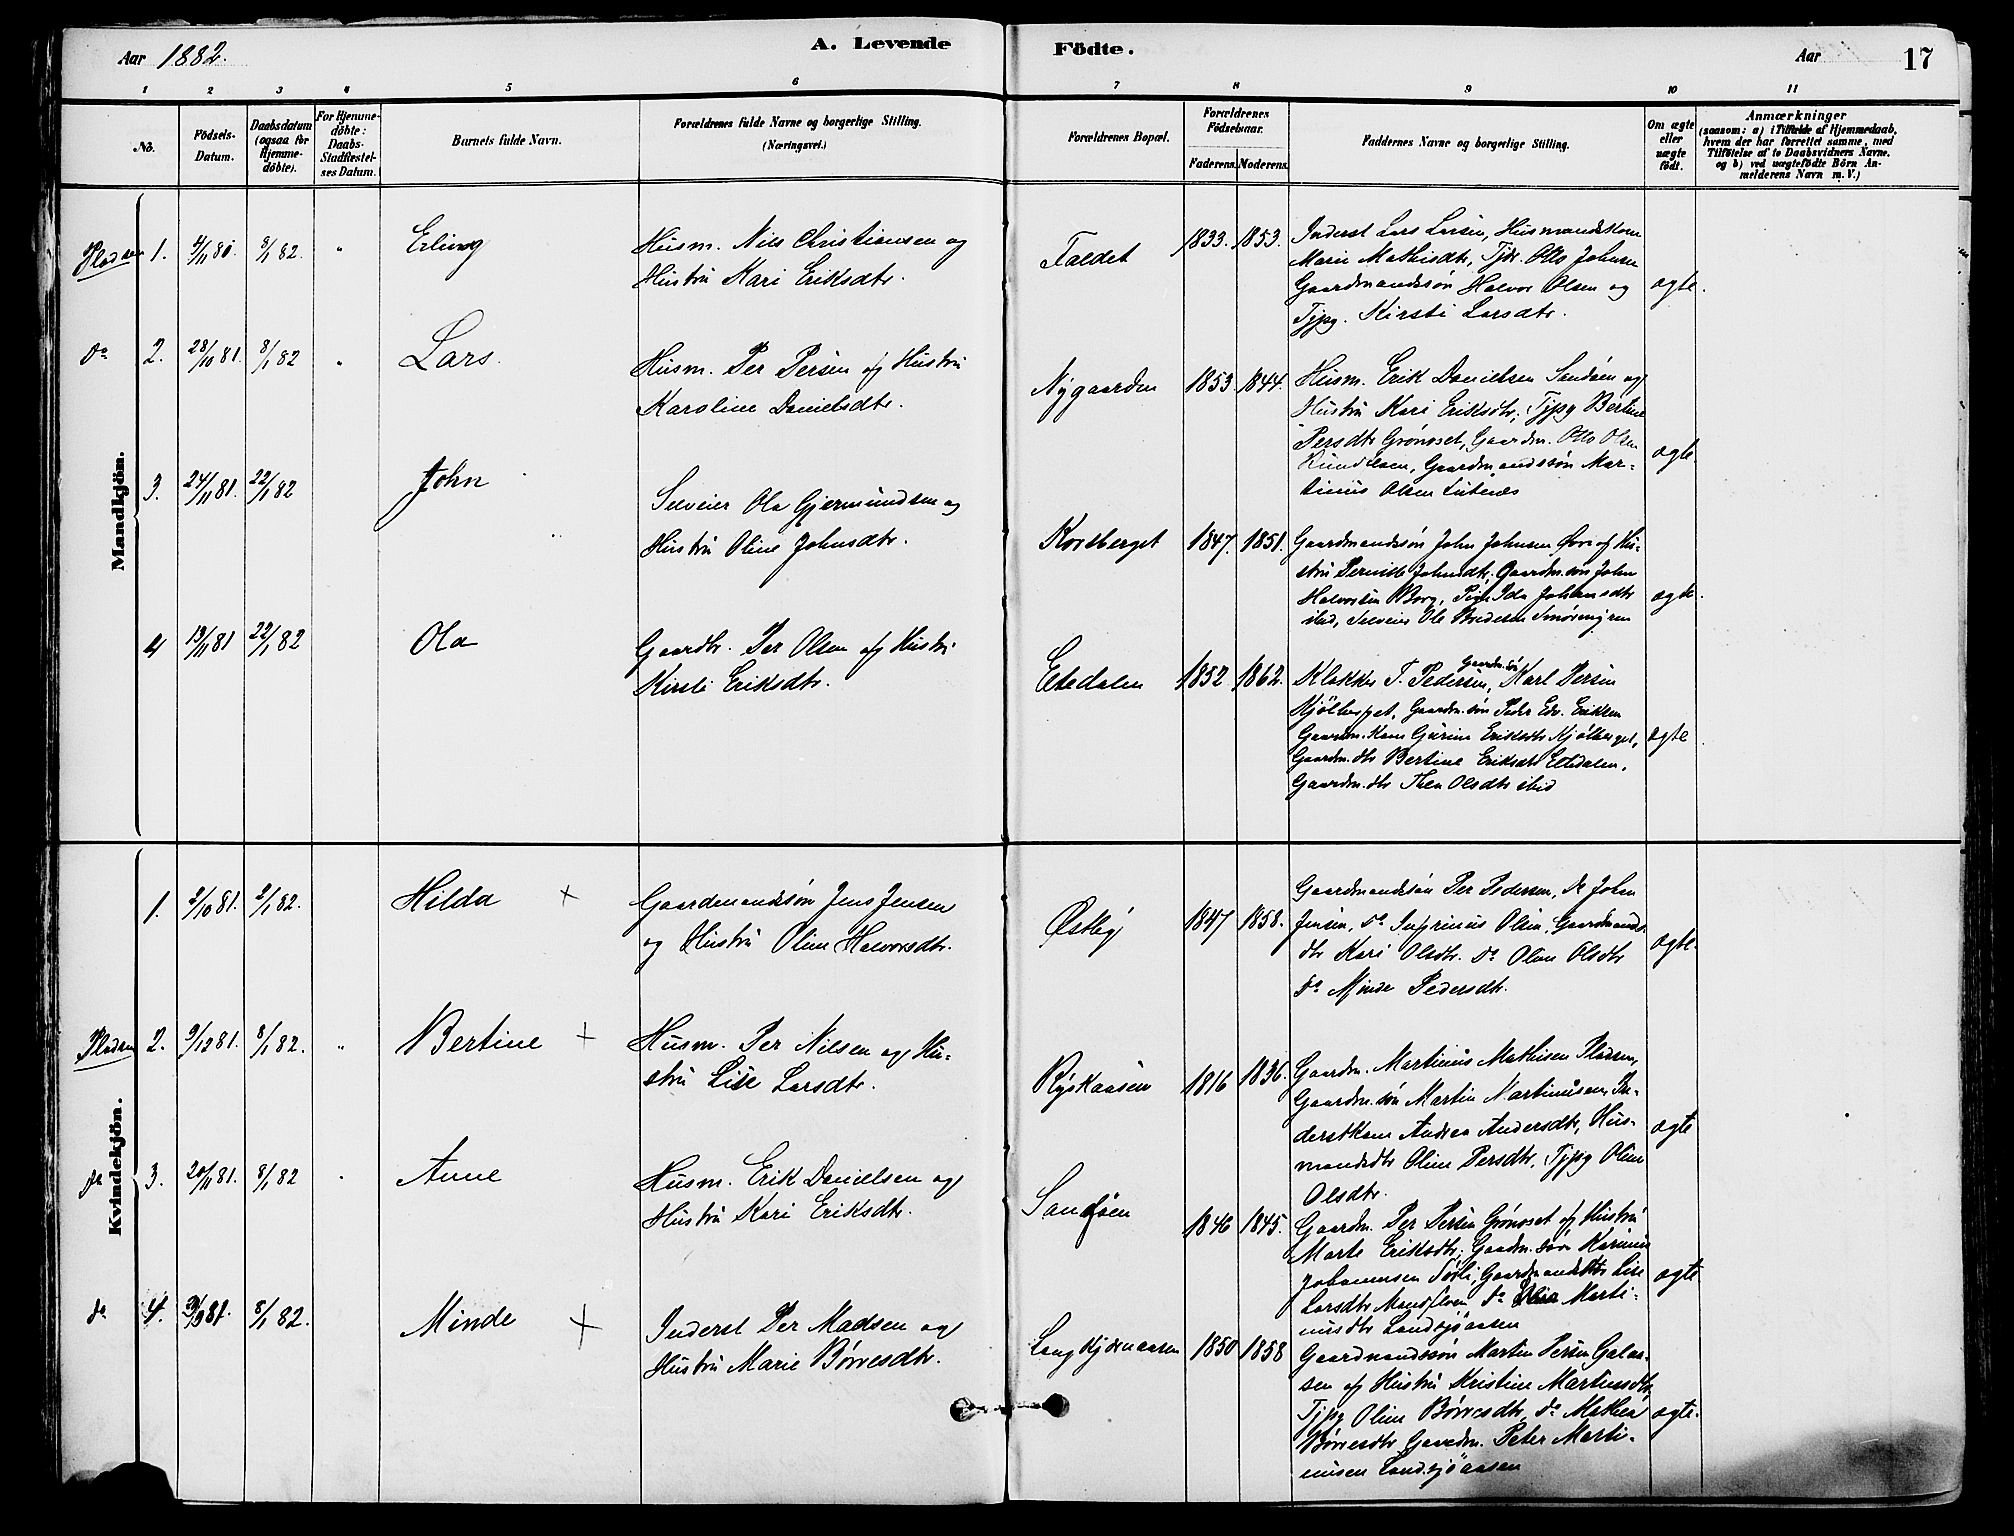 Aar 1882.
A. Levende Födte.
Aar
17
1 2 3 4 5 6 7 8 9 10 11
No.
Födsels-Datum.
Daabsdatum (ogsaa for Hjemme-döbte).
For Hjemme-döbte: Daabs-Stadfæstel-ses Datum.
Barnets fulde Navn.
Forældrenes fulde Navne og borgerlige Stilling.
(Næringsvei.)
Forældrenes Bopæl.
Forældrenes Födselsaar.
Faderens. Moderens.
Faddernes Navne og borgerlige Stilling.
Om ægte eller uægte födt.
Anmærkninger
(saasom: a) i Tilfælde af Hjemmedaab, hvem der har forrettet samme, med Tilföielse af to Daabsvidners Navne, og b) ved uægtefödte Börn An-melderens Navn m. V.)
Mandkjön.
Pladsen 1. 4/11 80 8/1 82. " Erling
Husm. Nils Christiansen og
Hustru Kari Eriksdtr.
Faldet 1833. 1853.
Inderst Lars Larsen, Husmandskone
Marie Mathisdtr, Tjdr. Otto Johnsen
Gaardmandssøn Halvor Olsen og
Tjpg. Kirsti Larsdtr.
ægte.
do 2. 28/10 81. 8/1 82 " Lars.
Husm. Per Persen og Hustru
Karoline Danielsdtr.
Nygaarden 1853. 1844.
Husm. Erik Danielsen Sandøen og
Hustru Kari Eriksdtr, Tjpg Bertine
Persdtr Grønoset, Gaardm. Otto Olsen
Gaardmandssøn Mar-
tinius Olsen
ægte.
3. 24/11 81. 22/1 82 John
Selveier Ola Gjermundsen og
Hustru Oline Johnsdtr.
Korsberget 1847. 1851.
Gaardmandssøn John Johnsen Øvre og Hu-
stru Pernille Johnsdtr. Gaardm.søn John
Halvorsen Borg, Pige Ida Johansdtr
ibid, Selveier Ole
ægte.
4 13/11 81 22/1 82 Ola
Gaardbr. Per Olsen og Hustru
Kirsti Eriksdtr.
Eltedalen 1852 1862.
Klokker T. Pedersen, Gaardm.søn Karl Persen
Kjølberget, Gaardm.søn Peder Edv. Eriksen
Gaardm.Kone Gurine Eriksdtr Kjølberget,
Gaardm.dtr Bertine Eriksdtr Eltedalen,
Gaardm.dtr Thea Olsdtr ibid
ægte
Kvindekjön.
1. 2/10 81. 2/1 82. Hilda +
Gaardmandssøn Jens Jensen
og Hustru Oline Halvorsdtr.
Østby 1847 1858.
Gaardmandssøn Per Pedersen, do Johan
Jensen, do Olsen, Gaardmands-
dtr Kari Olsdtr. do Oline Olsdtr
do Minde Pedersdtr.
ægte.
Pladsen 2. 9/12 81. 8/1 82. " Bertine +
Husm. Per Nilsen og Hu-
stru Lise Larsdtr.
Ryskaasen 1816 1836.
Gaardm. Martinius Mathisen Pladsen,
Gaardm.søn Martin Martinusen, In-
derstkone Andrea Andersdtr, Hus-
mandsdtr Oline Persdtr, Tjpg Oline
Olsdtr.
ægte
do 3. 20/11 81. 8/1 82 " Anne
Husm. Erik Danielsen og
Hustru Kari Eriksdtr.
Sandøen 1846 1845.
Gaardm. Per Persen Grønoset og Hustru
Marte Eriksdtr; Gaardm.søn Karinus
Johannesen Gaardmandsdtr Lise
Larsdtr do Marti-
nusdtr Landsjøaasen
ægte
do 4. 8/1 82. Minde +
Inderst Per Madsen og
Hustru Marie Børresdtr.
Langkjernaasen 1850 1858
Gaardmandssøn Martin Persen Galaa-
sen og Hustru Kristine Martinsdtr,
Tjpg Oline Børresdtr, do Mathea
Børresdtr Gaardm. Peter Marti-
nusen Landsjøaasen
ægte.